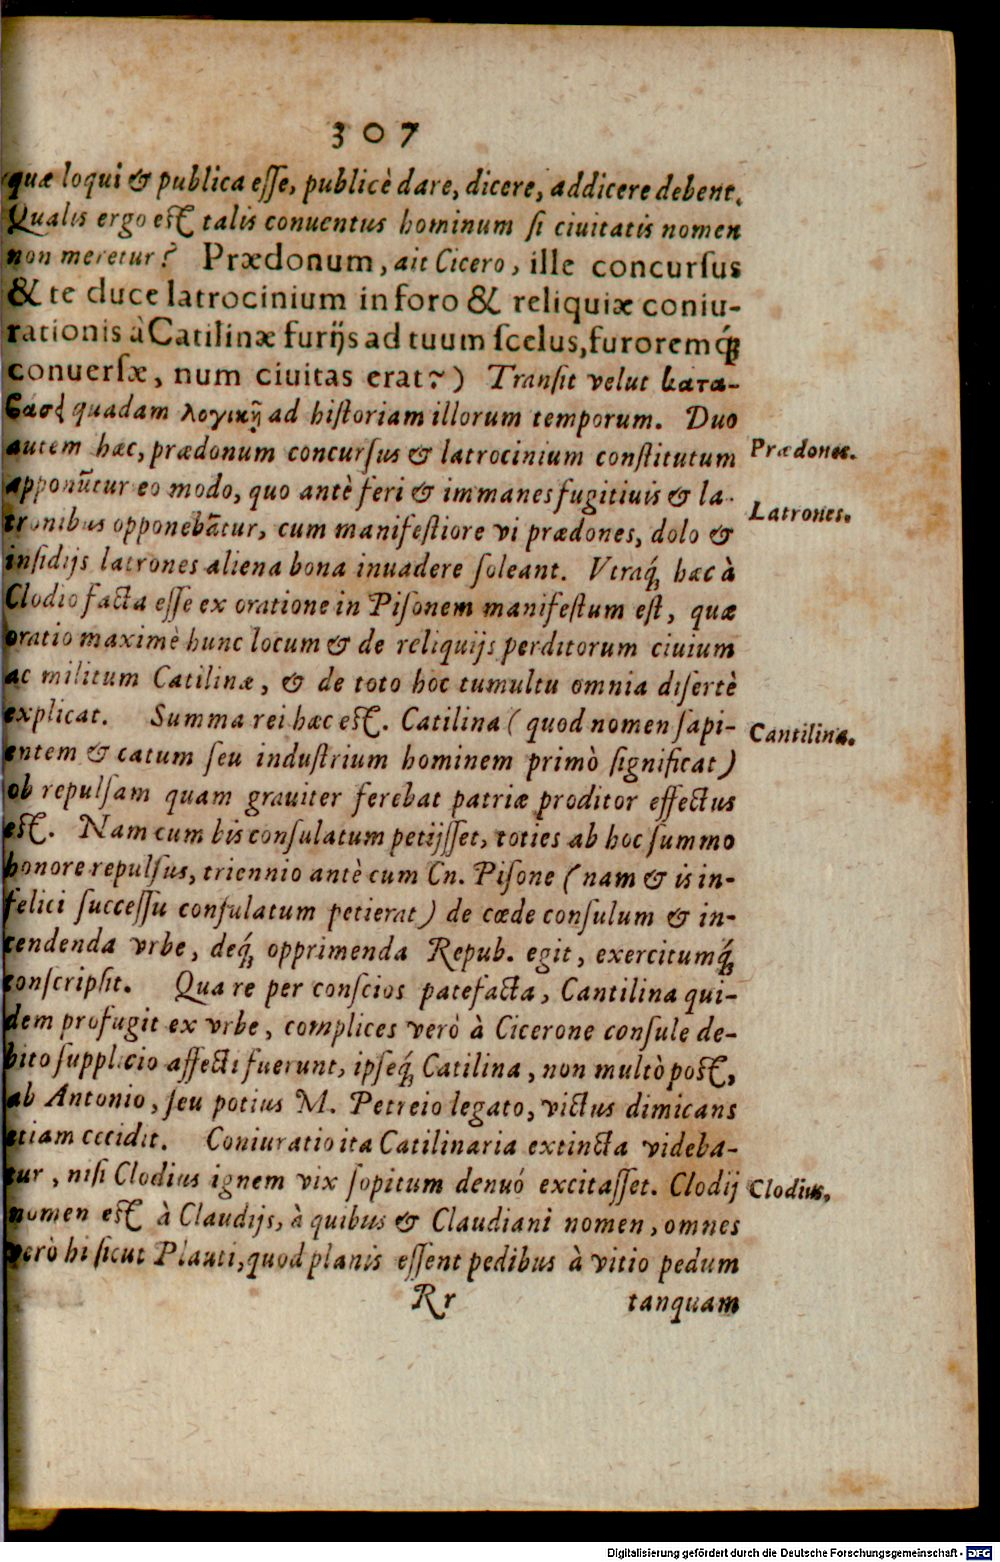 307
quæ loqui & publica eſſe, publicè dare, dicere, addicere debent.
Qualis ergo eſt talis conuentus hominum ſi ciuitatis nomen
non meretur? Prædonum, ait Cicero, ille concurſus
& te duce latrocinium in foro & reliquiæ coniu-
rationis à Catilinæ furijs ad tuum ſcelus, furoremq́;
conuerſæ, num ciuitas erat?) Tranſit velut κατα-
βάσει quadam λογικῇ ad hiſtoriam illorum temporum. Duo
autem hæc, prædonum concurſus & latrocinium conſtitutum
Prædones.
apponũtur eo modo, quo antè feri & immanes fugitiuis & la-
tronibus opponebãtur, cum manifeſtiore vi prædones, dolo &
Latrones.
inſidijs latrones aliena bona inuadere ſoleant. Vtraq́; hæc à
Clodio facta eſſe ex oratione in Piſonem manifeſtum eſt, quæ
oratio maximè hunc locum & de reliquijs perditorum ciuium
ac militum Catilinæ, & de toto hoc tumultu omnia diſertè
explicat. Summa rei hæc eſt. Catilina (quod nomen ſapi-
Cantilina.
entem & catum ſeu induſtrium hominem primò ſignificat)
ob repulſam quam grauiter ferebat patriæ proditor effectus
eſt. Nam cum bis conſulatum petijſſet, toties ab hoc ſummo
honore repulſus, triennio antè cum Cn. Piſone (nam & is in-
felici ſucceſſu conſulatum petierat) de cœde conſulum & in-
cendenda vrbe, deq́; opprimenda Repub. egit, exercitumq́;
conſcripſit. Qua re per conſcios patefacta, Cantilina qui-
dem profugit ex vrbe, complices verò à Cicerone conſule de-
bito ſupplicio affecti fuerunt, ipſeq́; Catilina, non multò poſt,
ab Antonio, ſeu potius M. Petreio legato, victus dimicans
etiam cecidit. Coniuratio ita Catilinaria extincta videba-
tur, niſi Clodius ignem vix ſopitum denuó excitaſſet. Clodij
Clodius.
nomen eſt à Claudijs, à quibus & Claudiani nomen, omnes
verò hi ſicut Plauti, quod planis eſſent pedibus à vitio pedum
Rr tanquam
Digitalisierung gefördert durch die Deutsche Forschungsgemeinschaft - DFG